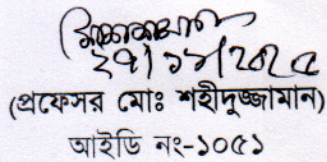 ২৭/১১/২০২৫
(প্রফেসর মোঃ শহীদুজ্জামান)
আইডি নং-১০৫১